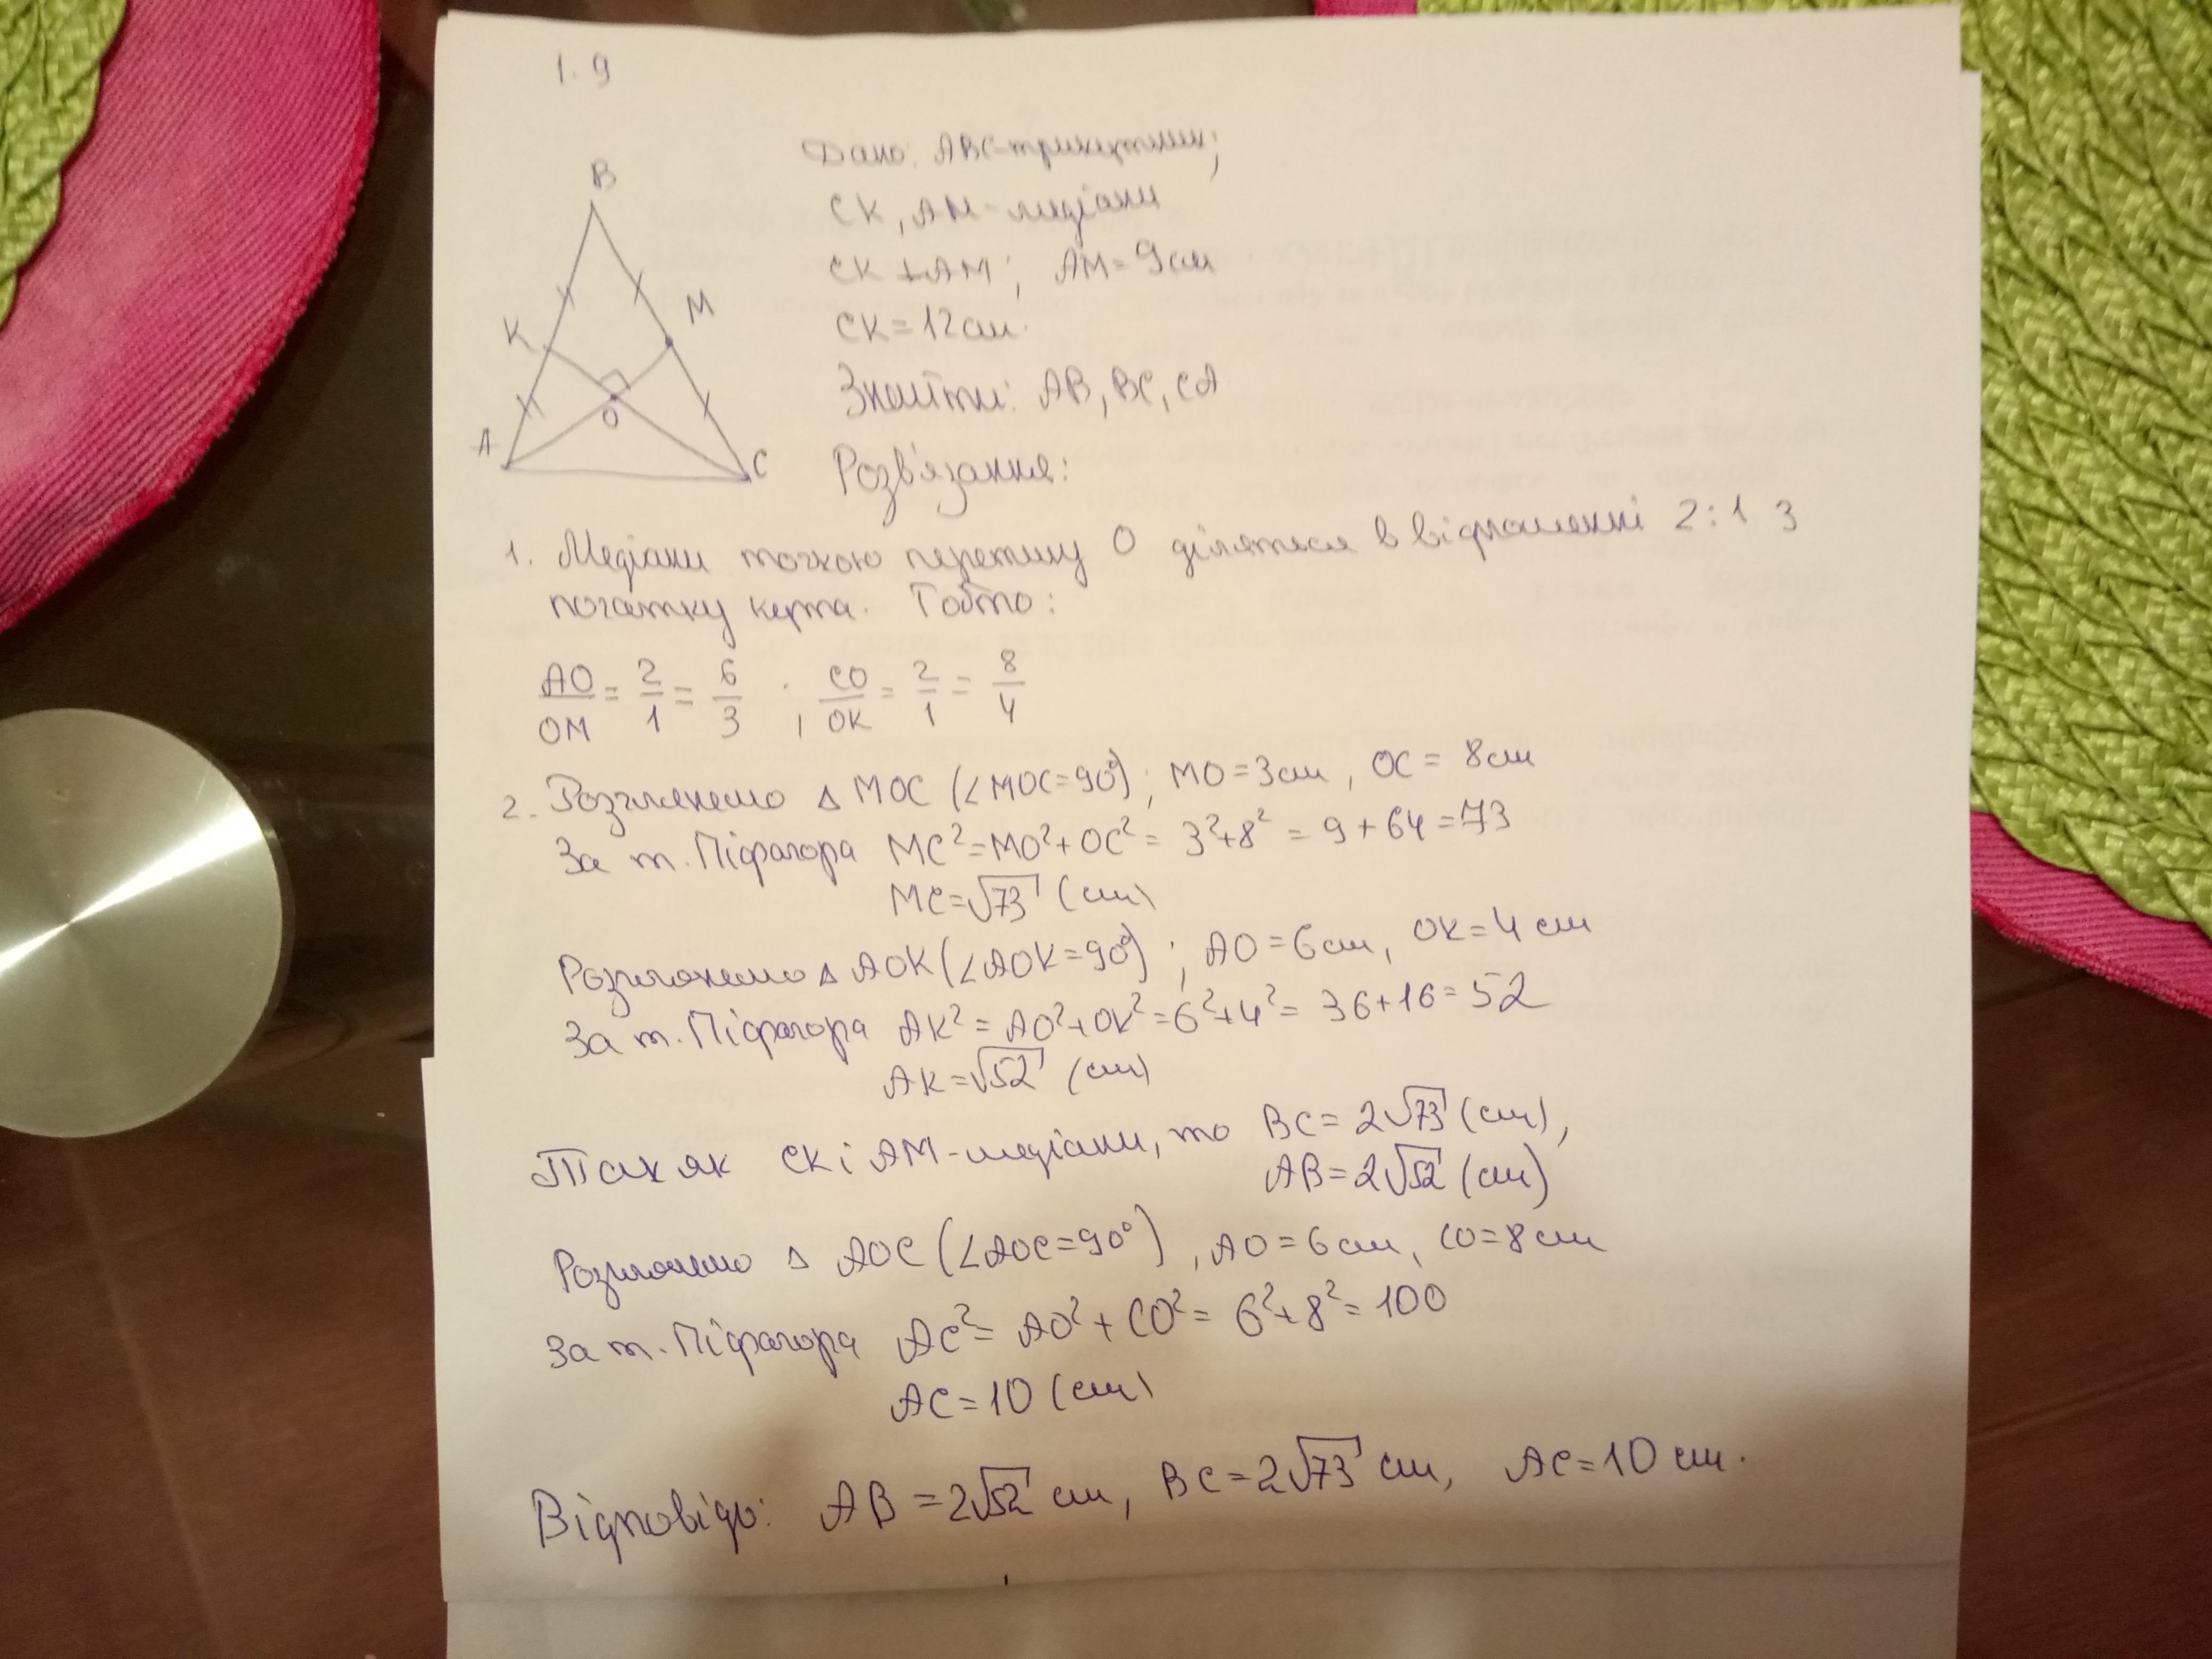 1.9
B
K
M
O
A
C
Дано: ABC-трикутник;
CK, AM - медіани
CK ⊥ AM; AM = 9см
CK = 12см.
Знайти: AB, BC, CA
Розв'язання:
1. Медіани точкою перетину O діляться в відношенні 2:1 з
початку кута. Тобто:
AO/OM = 2/1 = 6/3 ; CO/OK = 2/1 = 8/4
2. Розглянемо Δ MOC (∠MOC=90°); MO=3см, OC = 8см
За т. Піфагора MC²=MO²+OC² = 3²+8² = 9+64=73
MC=√73 (см)
Розглянемо Δ AOK (∠AOK=90°); AO=6см, OK=4 см
За т. Піфагора AK² = AO²+OK²=6²+4²= 36+16=52
AK=√52 (см)
Так як CK і AM-медіани, то BC= 2√73 (см),
AB=2√52 (см)
Розглянемо Δ AOC (∠AOC=90°), AO=6см, CO=8см
За т. Піфагора AC²= AO²+CO²= 6²+8²=100
AC=10 (см)
Відповідь: AB =2√52 см, BC=2√73 см, AC=10 см.